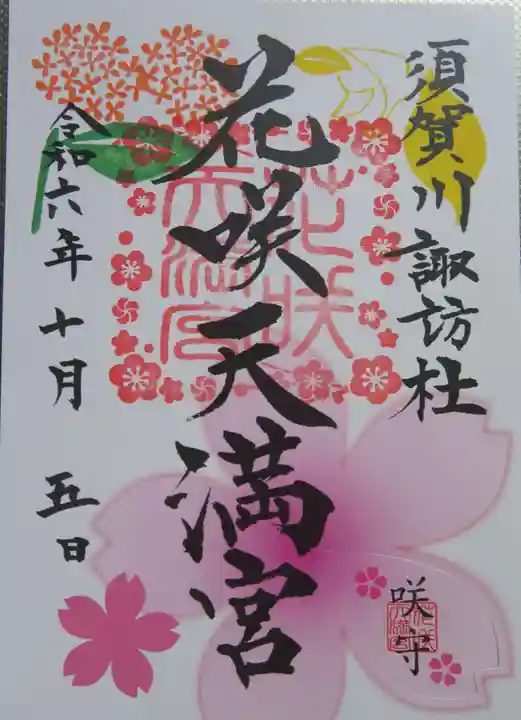 須賀川諏訪杜
花咲天満宮
花咲天満宮
令和六年十月五日
咲守